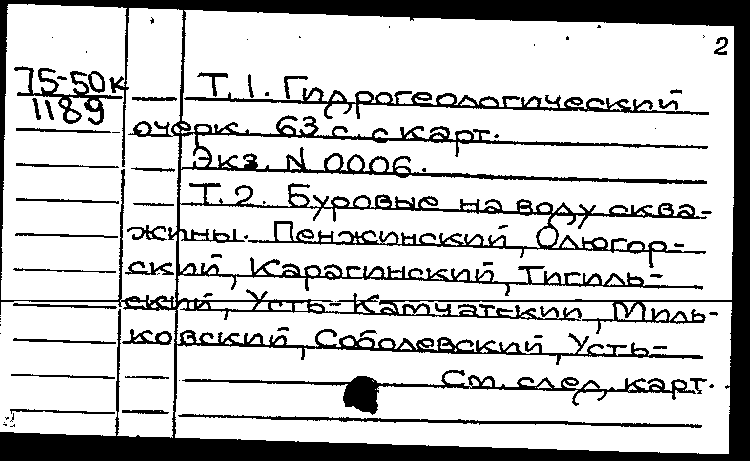 2
75-50к
1189
Т.1. Гидрогеологический
очерк. 63 с. с карт.
Экз. N 0006.
Т.2. Буровые на воду сква-
жины. Пенжинский, Олютор-
ский, Карагинский, Тигиль-
ский, Усть-Камчатский, Миль-
ковский, Соболевский, Усть-
См. след. карт.